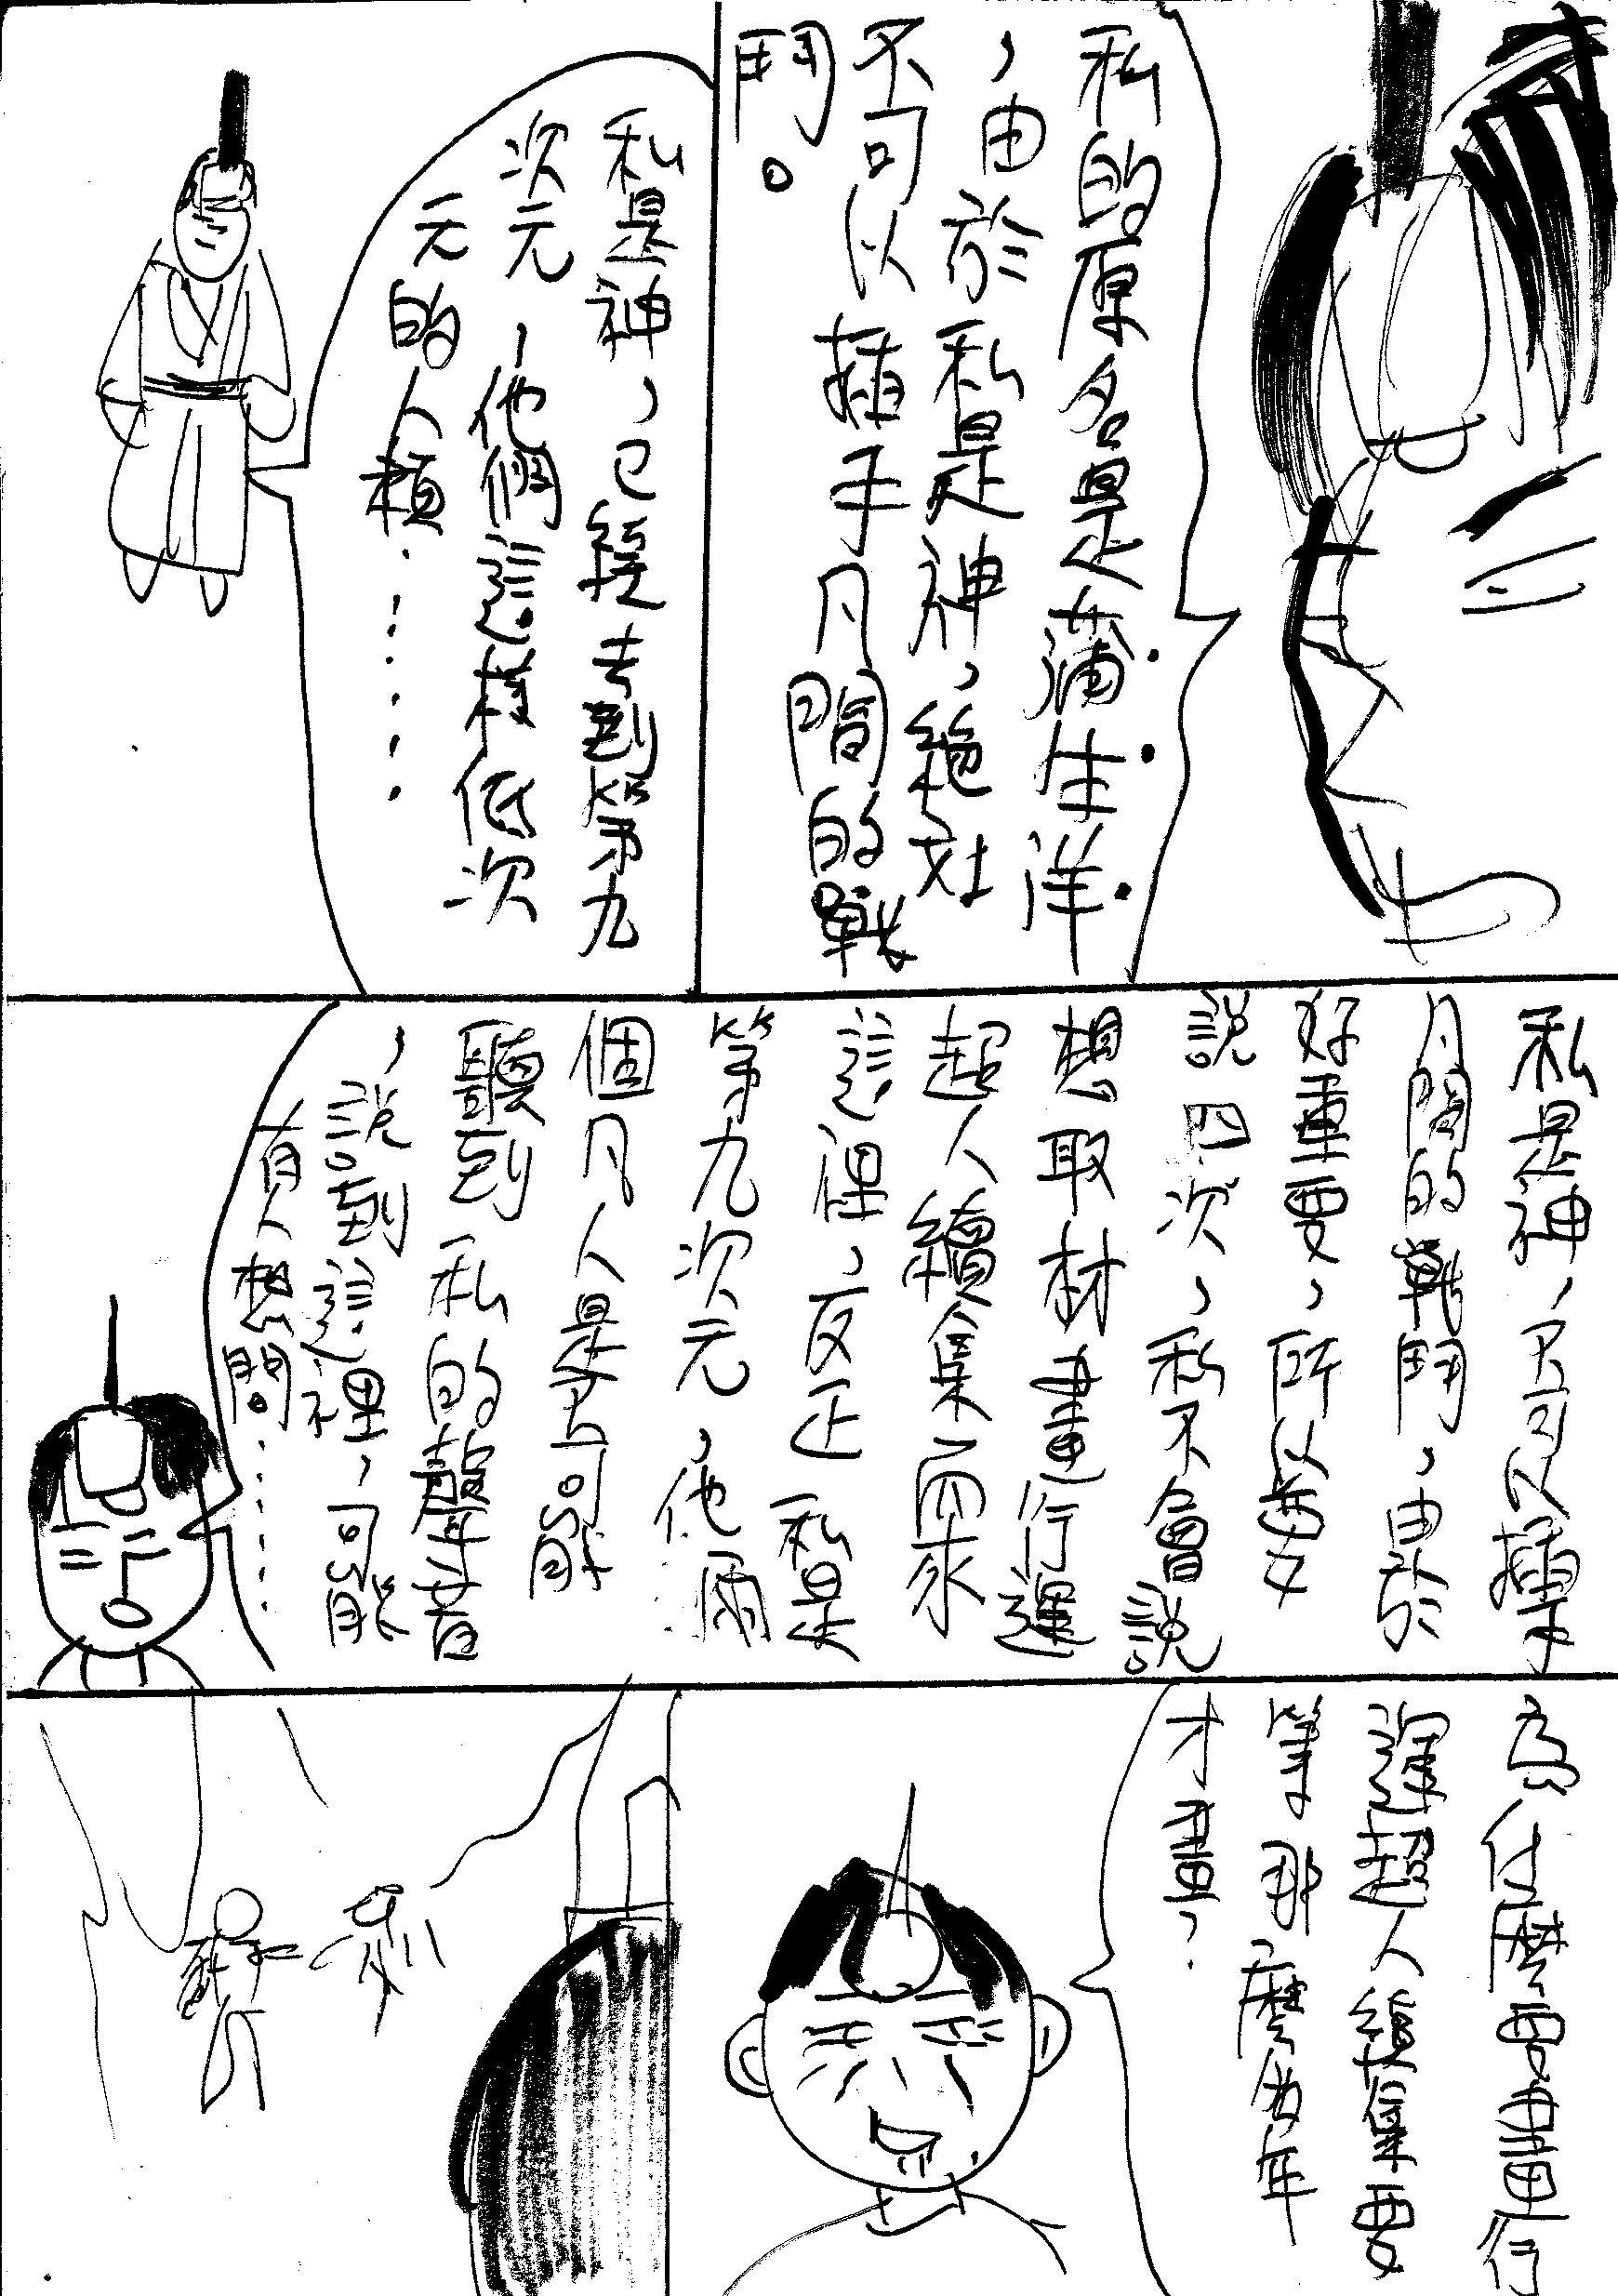 私的原名是蒲生洋
，由於私是神，絕对
不可以插手凡間的戰
鬥。
私是神，已經去到第九
次元，他們這樣低次
元的人類………
私是神，不可以插手
凡間的戰鬥，由於
好重要，所以要
說四次，私不會說
想取材畫行運
超人續集而來
這裡，反正私是
第九次元，他們
個凡人是不可能
聽到私的聲音
，說到這裡，可能
有人想問………
為什麼要畫行
運超人續集要
等那麼多年
才畫？